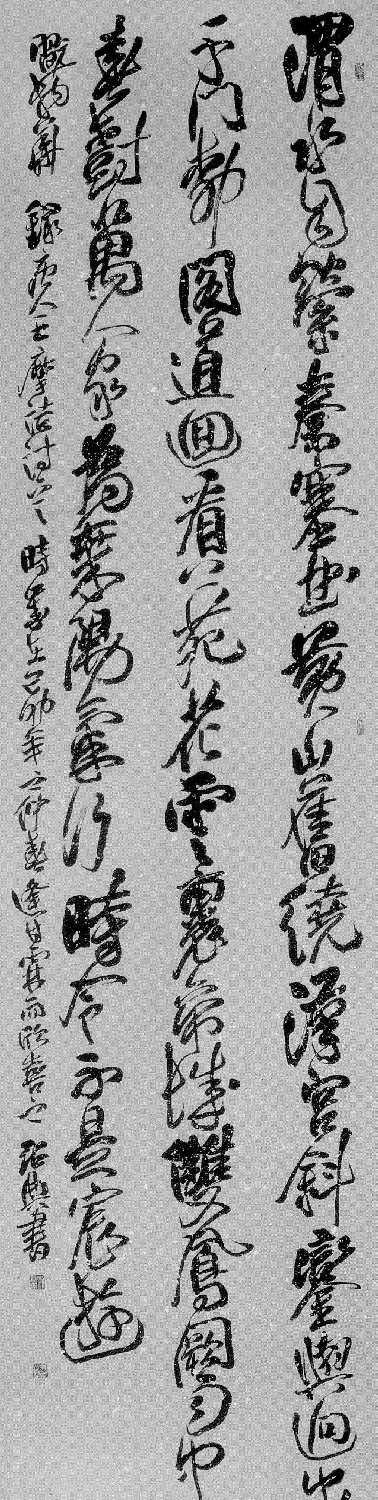 渭水自縈秦塞曲黃山舊繞漢宮斜鑾輿迥出
千門柳閣道迴看上苑花雲裏帝城雙鳳闕雨中
春樹萬人家為乘陽氣行時令不是宸遊
翫物華 錄唐人王摩詰詩 時歲在己卯年之仲春逢甘霖而欣喜 書